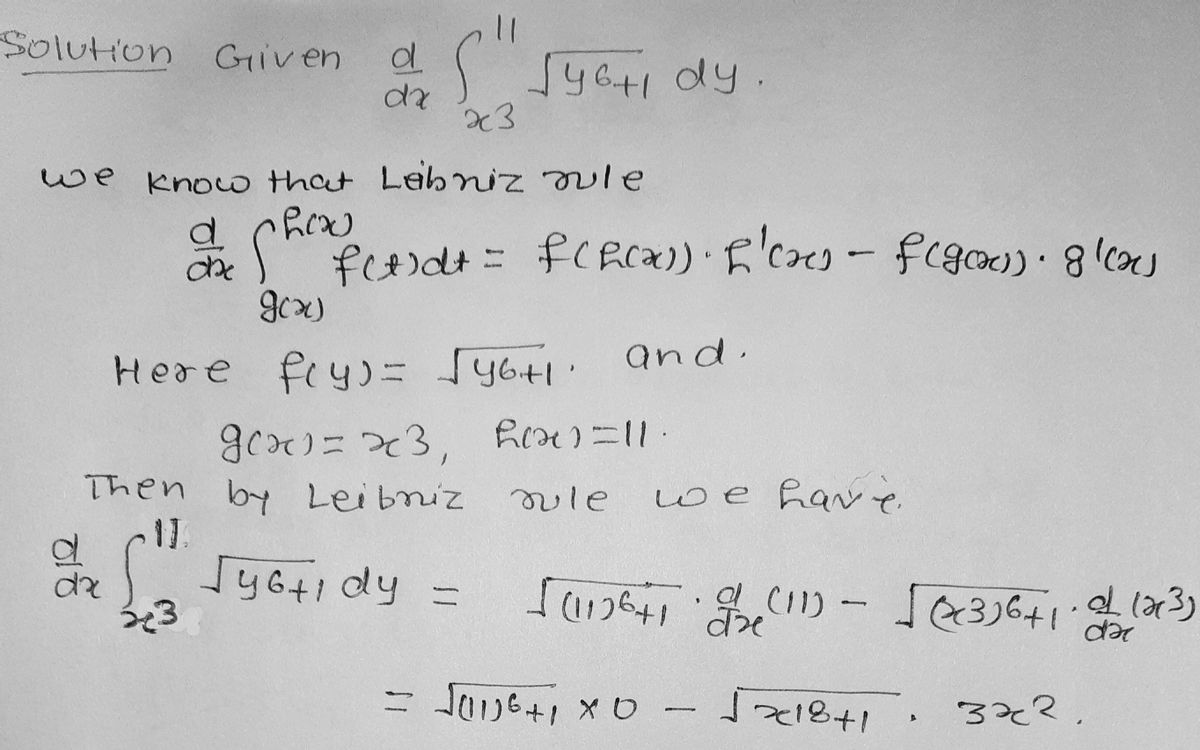 Solution Given d/dx ∫_{x3}^{11} √(y6+1) dy.
we know that Leibniz rule
d/dx ∫_{g(x)}^{h(x)} f(t)dt = f(h(x))·h'(x) − f(g(x))·g'(x)
Here f(y) = √(y6+1). and.
g(x) = x3, h(x) = 11.
Then by Leibniz rule we have.
d/dx ∫_{x3}^{11} √(y6+1) dy = √((11)6+1) · d/dx (11) − √((x3)6+1) · d/dx (x3)
= √((11)6+1) × 0 − √(x18+1) . 3x2.